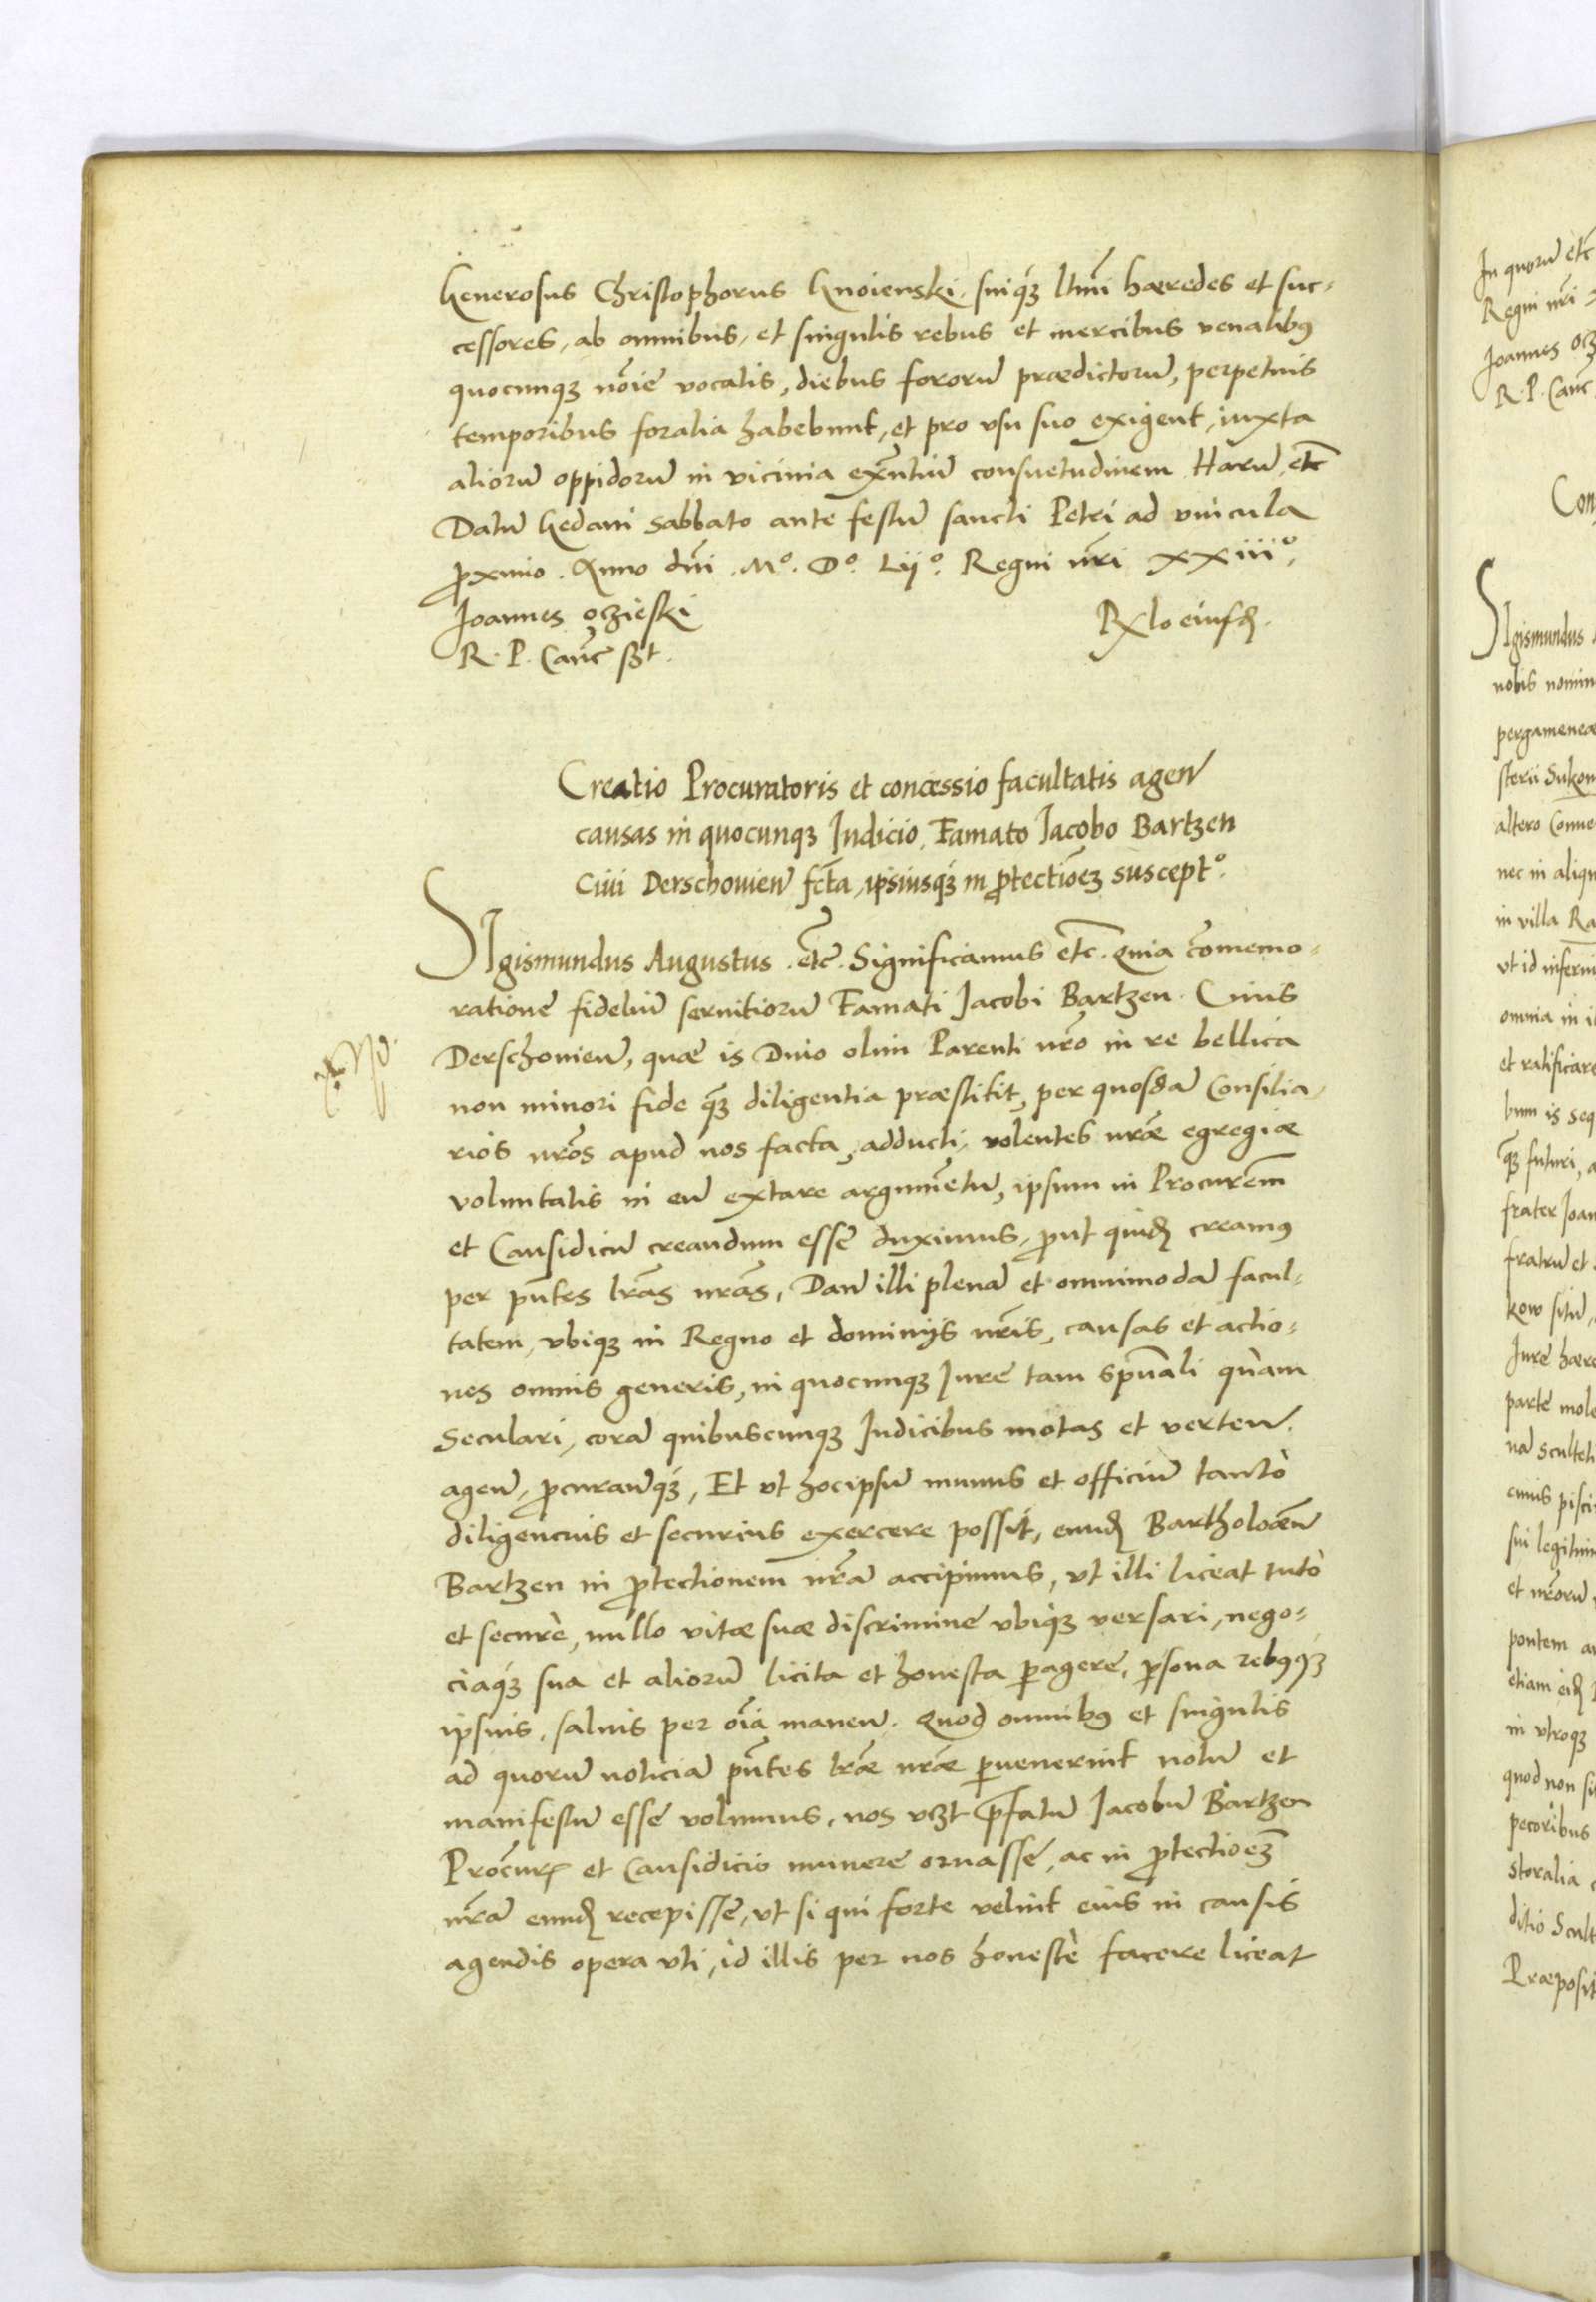 Generosus Christophorus Gnoienski, suiqꝫ ltmi̅ hæredes et suc=
cessores, ab omnibus, et singulis rebus et mercibus venalibꝯ
quocunqꝫ no̅ie vocatis, diebus fororu̅ prædictoru̅, perpetuis
temporibus foralia habebunt, et pro vsu suo exigent, iuxta
alioru̅ oppidoru̅ in vicinia exn̅tiu̅ consuetudinem. Haru̅ etc̅
Datu̅ Gedani Sabbato ante festu̅ sancti Petri ad vincula
ꝓximo. Anno dn̅i .Mº. Dº. Lijº. Regni nr̅i xxiiiº.
Joannes oczieski
R. P. Canc̅ sst.
Creatio Procuratoris et concessio facultatis agen̅
causas in quocunqꝫ Judicio, Famato Jacobo Bartzen
Ciui Derschouien̅ fc̅ta, ipsiusqꝫ in ꝓtectio̅eꝫ suscept°.
SIgismundus Augustus .etc̅. Significamus etc̅. Quia co̅memo=
ratione̅ fideliu̅ seruitioru̅ Famati Jacobi Bartzen Ciuis
Derschouien̅, quæ is Diuo olim Parenti nr̅o in re bellica
non minori fide qꝫ diligentia præstitit, per quosda̅ Consilia=
rios nr̅os apud nos facta, adducti, volentes nr̅æ egregiæ
voluntatis in eu̅ extare argume̅tu̅, ipsum in Procure̅m
et Causidicu̅ creandum esse duximus, ꝓut quidꝫ creamꝯ
per pn̅tes lr̅as nr̅as, Dan̅ illi plena̅ et omnimoda̅ facul=
tatem, vbiqꝫ in Regno et dominijs nr̅is, causas et actio=
nes omnis generis, in quocunqꝫ Jure tam spu̅ali quàm
Seculari, cora̅ quibuscunqꝫ Judicibus motas et verten̅.
agen̅, ꝓcuran̅qꝫ, Et vt hocipsu̅ munus et officiu̅ tanto
diligencius et securius exercere possit, eundꝫ Bartholoæu̅
Bartzen in ꝓtectionem nr̅a̅ accipimus, vt illi liceat tutò
et securè, nullo vitæ suæ discrimine vbiqꝫ versari, nego=
ciaqꝫ sua et alioru̅ licita et honesta ꝑagere, ꝑsona rebꝯqꝫ
ipsius, saluis per oi̅a manen̅. Quod omnibꝯ et singulis
ad quoru̅ noticia̅ pn̅tes lr̅æ nr̅æ ꝑuenerint notu̅ et
manifestu̅ esse volumus, nos vꝫt p̅fatu̅ Jacobu̅ Bartzen
Procur̅ et Causidicio munere ornasse, ac in ꝓtectioe̅ꝫ
nr̅a̅ eundꝫ recepisse, vt si qui forte velint eius in causis
agendis opera vti, id illis per nos honestè facere liceat
In quoru̅ etc̅
Regni nr̅i
Joannes ocz
R. P. Canc̅
Con
SIgismundus
nobis nomin
pergameneæ
sterii Sukow
altero Conue
nec in aliqu
in villa Ra
vt id inferiu
omnia in i
et ratificare
bum is seq
qꝫ futuri, a
frater Joan
fratru̅ et
kow situ̅,
Jure hære
parte mole
na̅ scultet
cuius pisci
sui legitim
et nr̅oru̅
pontem a
etiam eidꝫ
in vtroqꝫ
quod non si
pecoribus
storalia
ditio Scult
Præposit